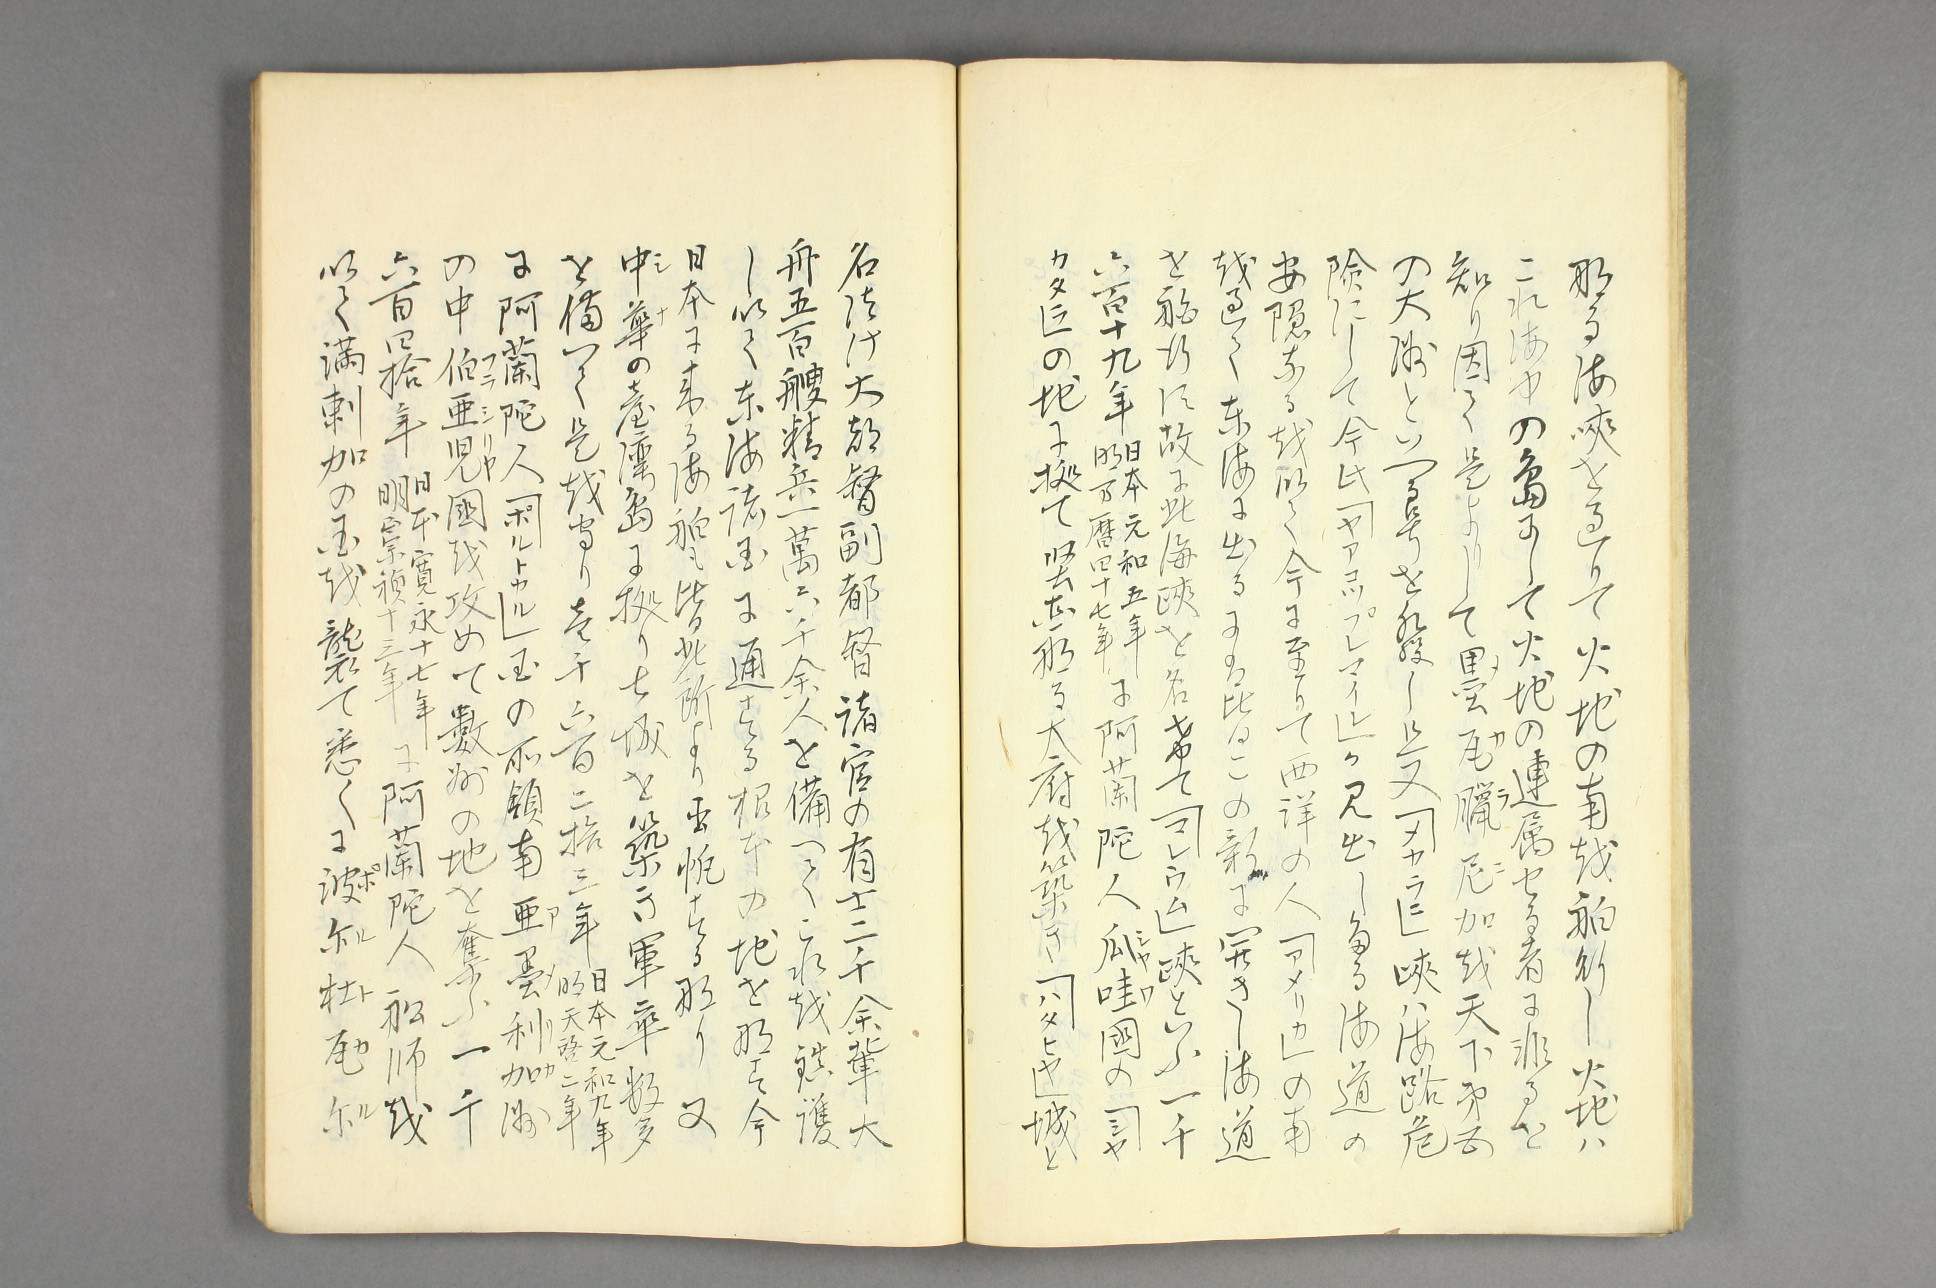 那る海峽を通りて火地の南越舶行し火地ハ
これ海中の島まして火地の連属せる者ま非るを
知り因て是よりして墨瓦臘尼加越天下第五
の大洲といへる号を發し且又「メカラニ」峽ハ海路危
険にして今此「ヤアコップレマイレ」か見出し多る海道の
安隠なる越以て今ま至りて西洋の人「アメリカ」の南
越過て東海ま出るまハ此この新ま開きし海道
を舶行す故ま此海峽を名希て「マレラム」峽といふ一千
六百十九年日本元和五年
明万暦四十七年ま阿蘭陀人瓜哇國の「シャ
カタラ」の地ま拠て堅固那る大府越築き「ハタヒヤ」城と
名徒け大都督副都督諸官の有士二千余輩大
舟五百艘精兵一萬六千余人を備へてこれ越鎮護
し以て東海諸国ま通する根本の地を那す今
日本ま来る海舶も皆此所より出帆する那り又
中華の臺灣島ま拠り七城を築き軍卒数多
を備へて是越守り壱千六百二拾三年日本元和九年
明天啓二年
ま阿蘭陀人「ポルトカル」国の所領南亜墨利加洲
の中伯亜児國越攻めて數州の地を奪ふ一千
六百四拾年日本寛永十七年
明崇禎十三年ま阿蘭陀人船師越
以て満剌加の国越襲て悉くま波尓杜瓦尓